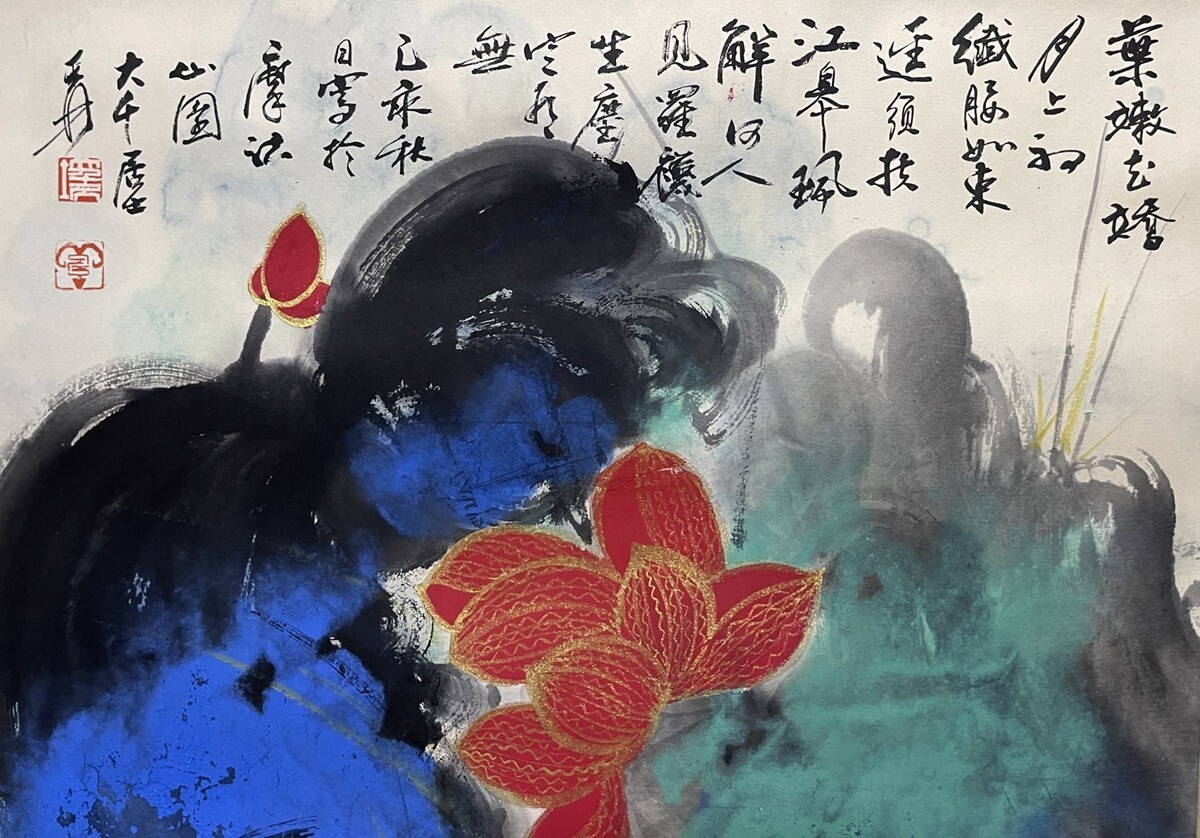 葉嫩花嬌
月上初
纖腰如束
逕須扶
江皋珮
解何人
見羅襪
生塵
定有
無
己亥秋
日寫於
摩詰
山園
大千居士
爰